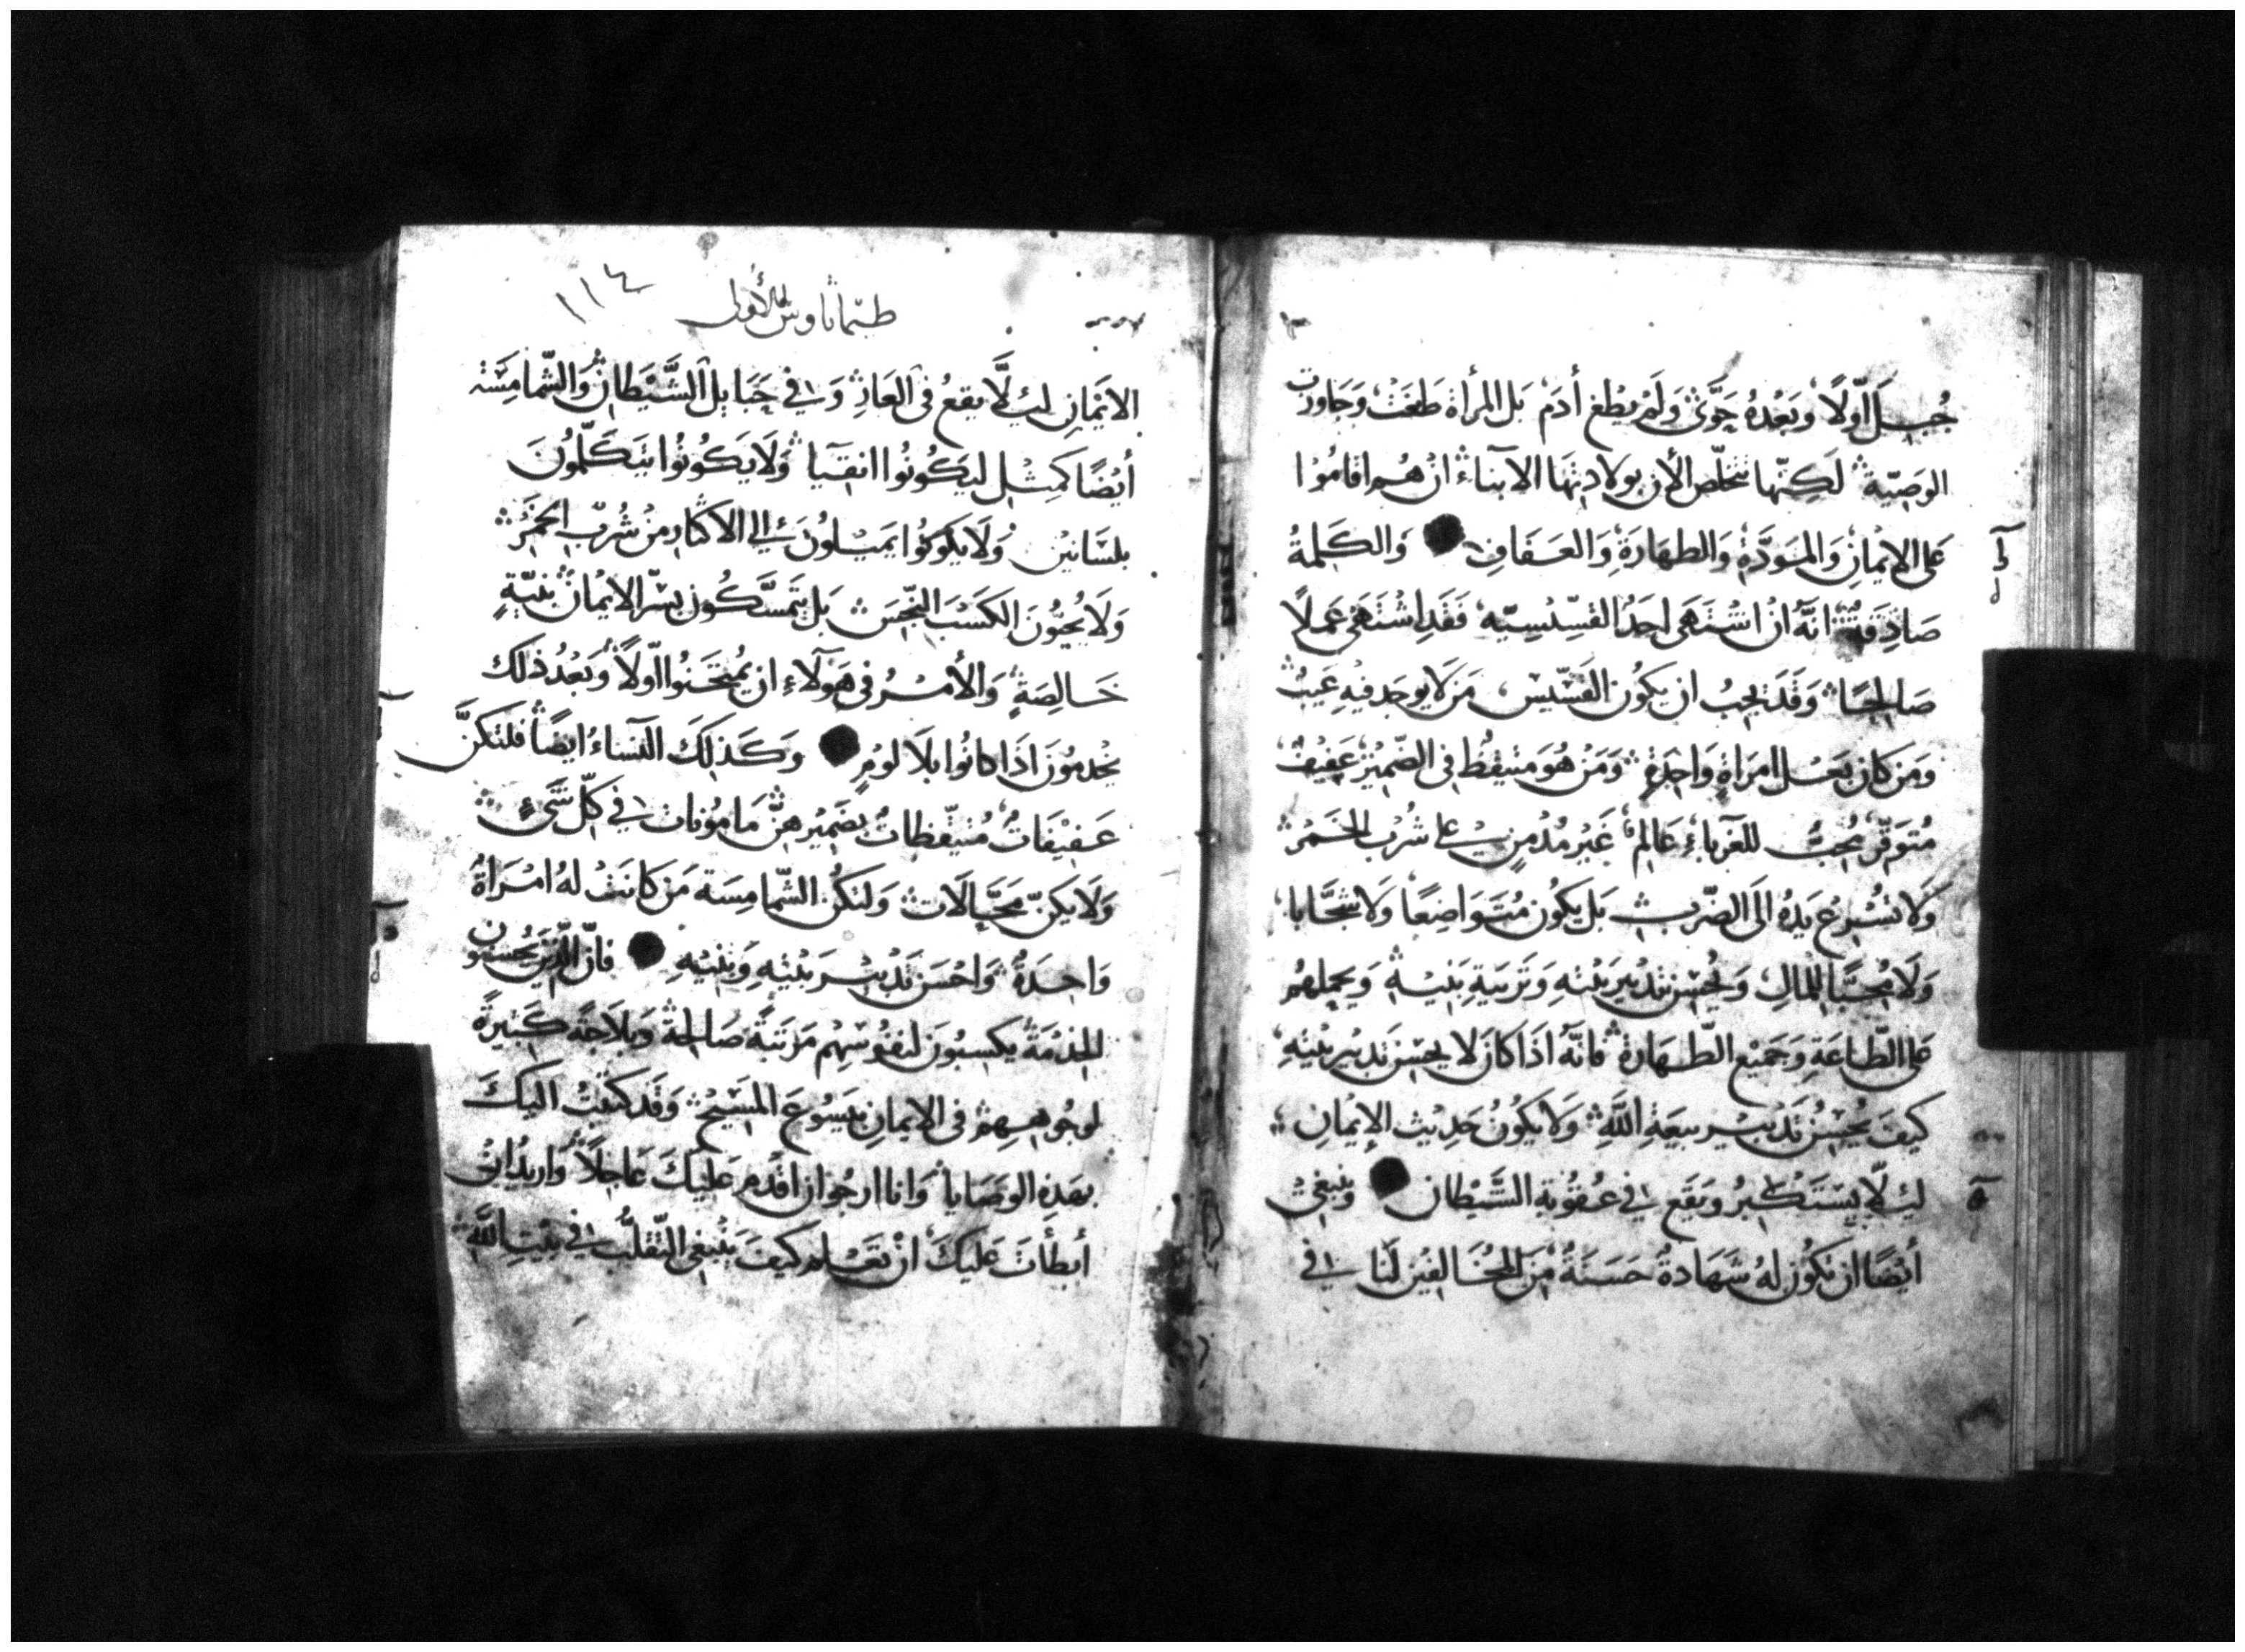 جُبِلَ اَوّلًا وبَعْدهُ حَوَّى وَلَمْ يطْغ أدَم بَل المرأة طَغَتْ وَجَاوزت
الوَصِيّة لَكِنّها تتخلّص الأن بولادتها الابناء ان هُم اقامُوا
عَلى الايمانِ وَالمَودَّةِ وَالطهَارَةِ وَالعَفَافِ وَالكَلِمةُ
صَادِقَةٌ انَّهُ انْ اشتَهَى احَدُ القسِّيسيّه فَقَدِ اشتَهَى عَملًا
صَالِحًا وَقَدَ يجبُ ان يكوُن القسّيس مَن لَا يوجَد فيهِ عَيبٌ
وَمَن كانَ بَعْل امرَاةٍ وَاحِدَةٍ وَمَنْ هُوَ متيقظ فى الضّميْر عَفِيفٌ
مُتَوَقّر مُحِبٌّ للغُرَباءِ عَالِم غَيْر مُدْمنٍ على شُرْب الخَمْر
وَلَا تسْرع يَدهُ الَى الضّربِ بَل يكُون مُتَوَاضِعًا وَلَا سَخَّابا
وَلَا مُحِبًّا للمَالِ وَيُحْسِن تَدْبيرَ بَيْتهِ وَتَربَيةِ بَنيْهِ وَيحملهُم
عَلى الطّاعَةِ وَجَميْع الطّهَارة فانّهُ اذَا كانَ لا يحْسِن تَدبيْر بَيْتهِ
كيفَ يُحْسِنُ تَدْبيْر بيعَةِ اللهِ وَلا يَكُونُ حَدِيْث الإيْمانِ
ليلّا يَسْتَكبرُ وَيقَع فى عُقوُبة الشَّيْطان وَينبغى
أيْضًا ان تكوُن لهُ شَهَادةٌ حَسَنَةٌ مِنَ المُخَالفيْن لنَا فى
طيماثاوس الأولى ١١٤
الايْمَانِ ليلَّا يقعُ فى العَارِ وَفى حَبَايل الشَّيْطانِ وَالشّمامِسَة
أيْضًا كَمِثْل ليَكُونُوا انقيَا وَلَا يَكُونوُا يتَكَلَّمُونَ
بلسَانيْن وَلَا يكوُنوُا يَميْلُونَ الى الاكثار منْ شُربِ الخَمْر
وَلَا يُحبُّونَ الكَسْبَ النّجسَ بَل يتَمسَّكوُن بسّر الايْمان بنيّةٍ
خَالِصَةٍ وَالأمْرُ فى هَولَاءِ ان يُمتَحَنُوا اوّلًا وَبَعْدُ ذلك
يخْدمُونَ اذَا كانُوا بلَا لومٍ وَكَذلِكَ النسَاءُ ايضًا فلتكنَّ
عَفيْفَاتٌ مُتيقّظاتٌ بضَميْرهِنَّ مَامُونات فى كلّ شَىٍ
وَلَا يكنّ مَحَّالَات وَلتكُن الشّمامِسَة مَن كانَتْ لهُ امْرَاةٌ
وَاحِدَةٌ وَاحْسَن تَدْبيْر بَيْتهِ وَبَنيْهِ فانّ الّذيْن يُحْسنُون
الخدْمَة يكسبُون لنفوُسِهُم مَرتَبةً صَالحةً وَبلَاجَة كبيْرةً
لوجُوههِم فى الايمانِ بيَسُوعَ المَسيْح وَقَد كتبْتُ اليكَ
بهَذِهِ الوَصَايا وَانا ارجُوا ان اقدُم عَليكَ عَاجِلًا وَاريْد انْ
أبطَأتُ عَليكَ انْ تعْلم كيفَ ينْبغى التّقلُّب فى بيْتِ اللهِ